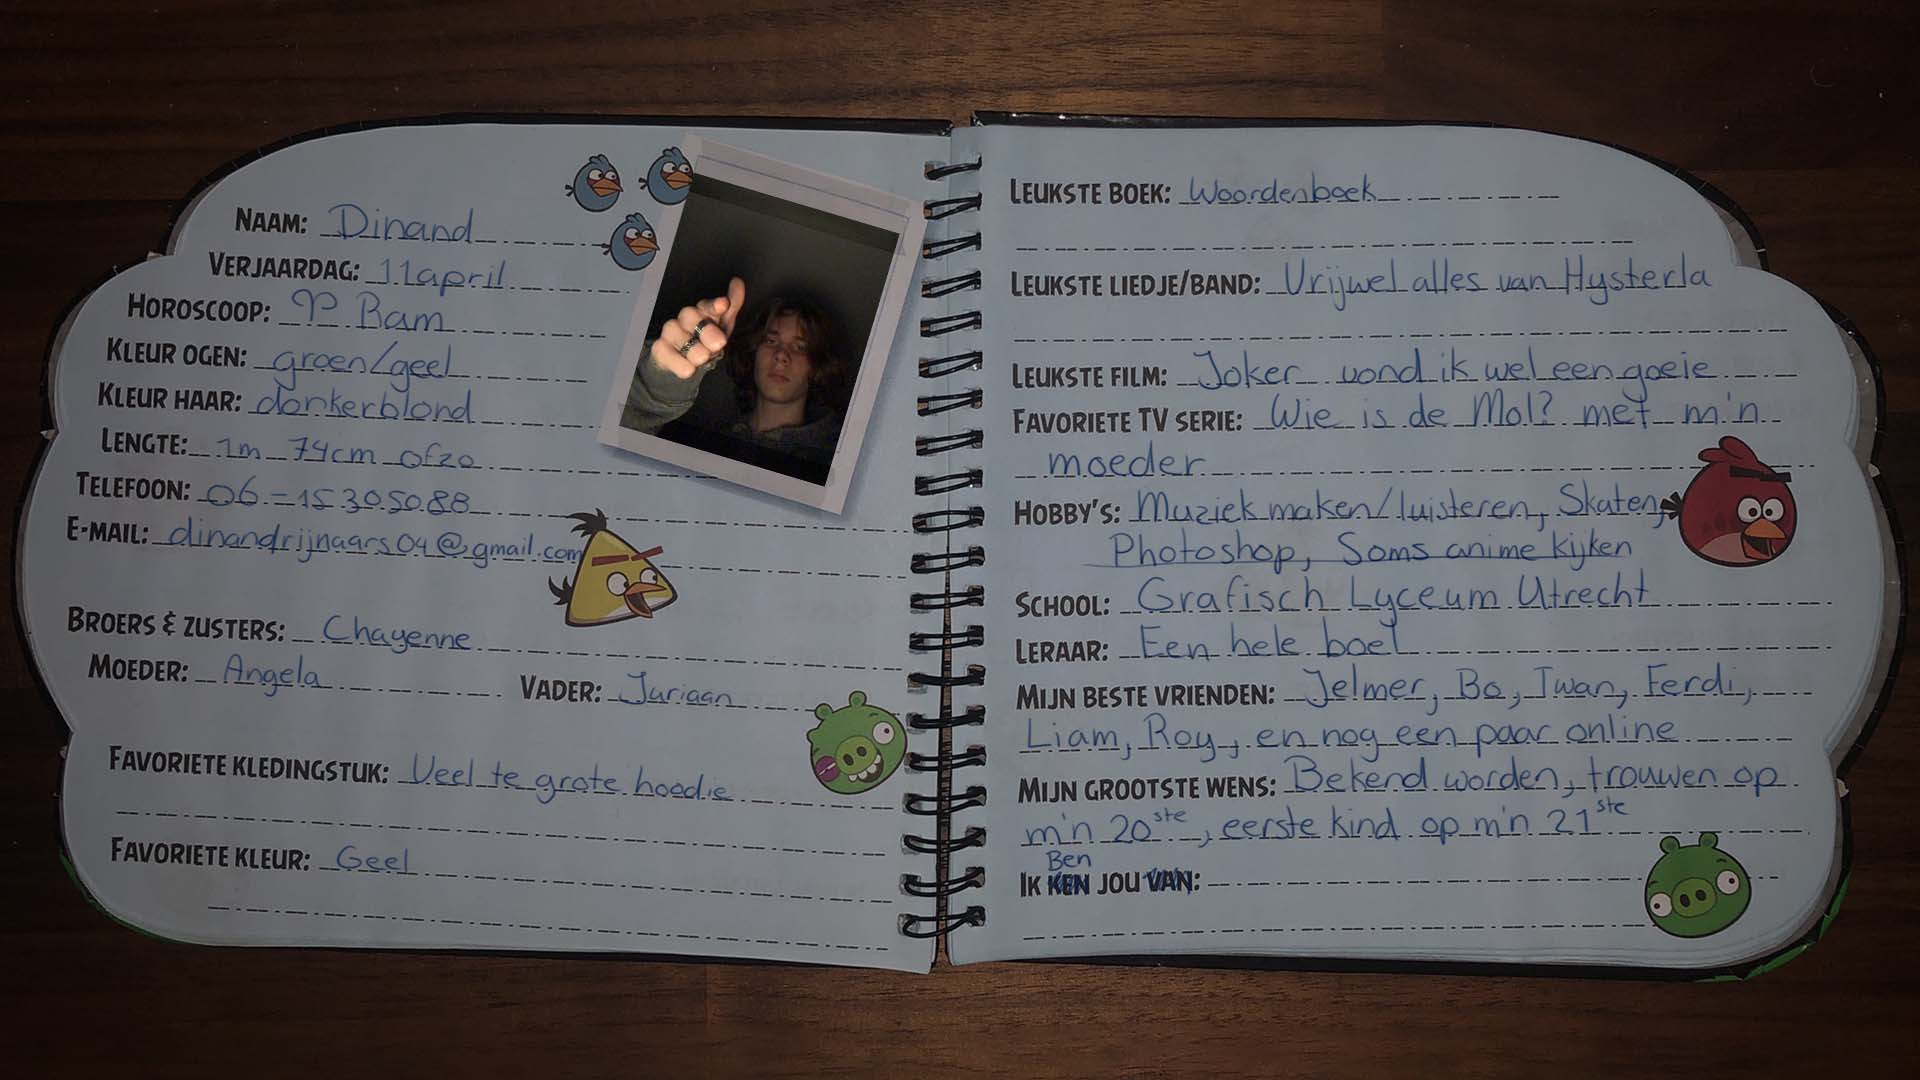 NAAM: Dinand
VERJAARDAG: 11 april
HOROSCOOP: ♈ Ram
KLEUR OGEN: groen/geel
KLEUR HAAR: donkerblond
LENGTE: 1m 74cm ofzo
TELEFOON: 06-15305088
E-MAIL: dinandrijnaars04@gmail.com
BROERS & ZUSTERS: Chayenne
MOEDER: Angela VADER: Juriaan
FAVORIETE KLEDINGSTUK: Veel te grote hoodie
FAVORIETE KLEUR: Geel
LEUKSTE BOEK: Woordenboek
LEUKSTE LIEDJE/BAND: Vrijwel alles van Hysterla
LEUKSTE FILM: Joker vond ik wel een goeie
FAVORIETE TV SERIE: Wie is de Mol? met m'n
moeder
HOBBY'S: Muziek maken/luisteren, Skaten,
Photoshop, Soms anime kijken
SCHOOL: Grafisch Lyceum Utrecht
LERAAR: Een hele boel
MIJN BESTE VRIENDEN: Jelmer, Bo, Twan, Ferdi,
Liam, Roy, en nog een paar online
MIJN GROOTSTE WENS: Bekend worden, trouwen op
m'n 20ste, eerste kind op m'n 21ste
Ben
IK KEN JOU VAN: